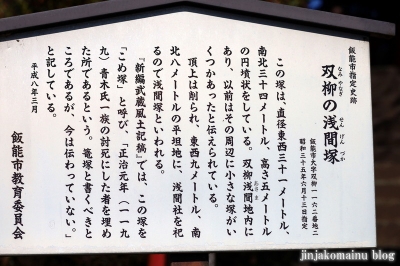 飯能市指定史跡
双柳の浅間塚
なみ やなぎ
せん げん づか
飯能市大字双柳一一六二番地二
昭和三十五年六月十三日指定
この塚は、直径東西三十一メートル、
南北三十四メートル、高さ五メートル
の円墳状をしている。双柳浅間地内に
あり、以前はその周辺に小さな塚がい
くつかあったと伝えられている。
頂上は削られ、東西九メートル、南
北八メートルの平坦地に、浅間社を祀
るので浅間塚といわれる。
『新編武蔵風土記稿』では、この塚を
「こめ塚」と呼び、「正治元年(一一九
九)青木氏一族の討死にした者を埋め
た所であるという。篭塚と書くべきと
ころであるが、今は伝わっていない。」
と記している。
平成八年三月
飯能市教育委員会
jinjakomainu blog